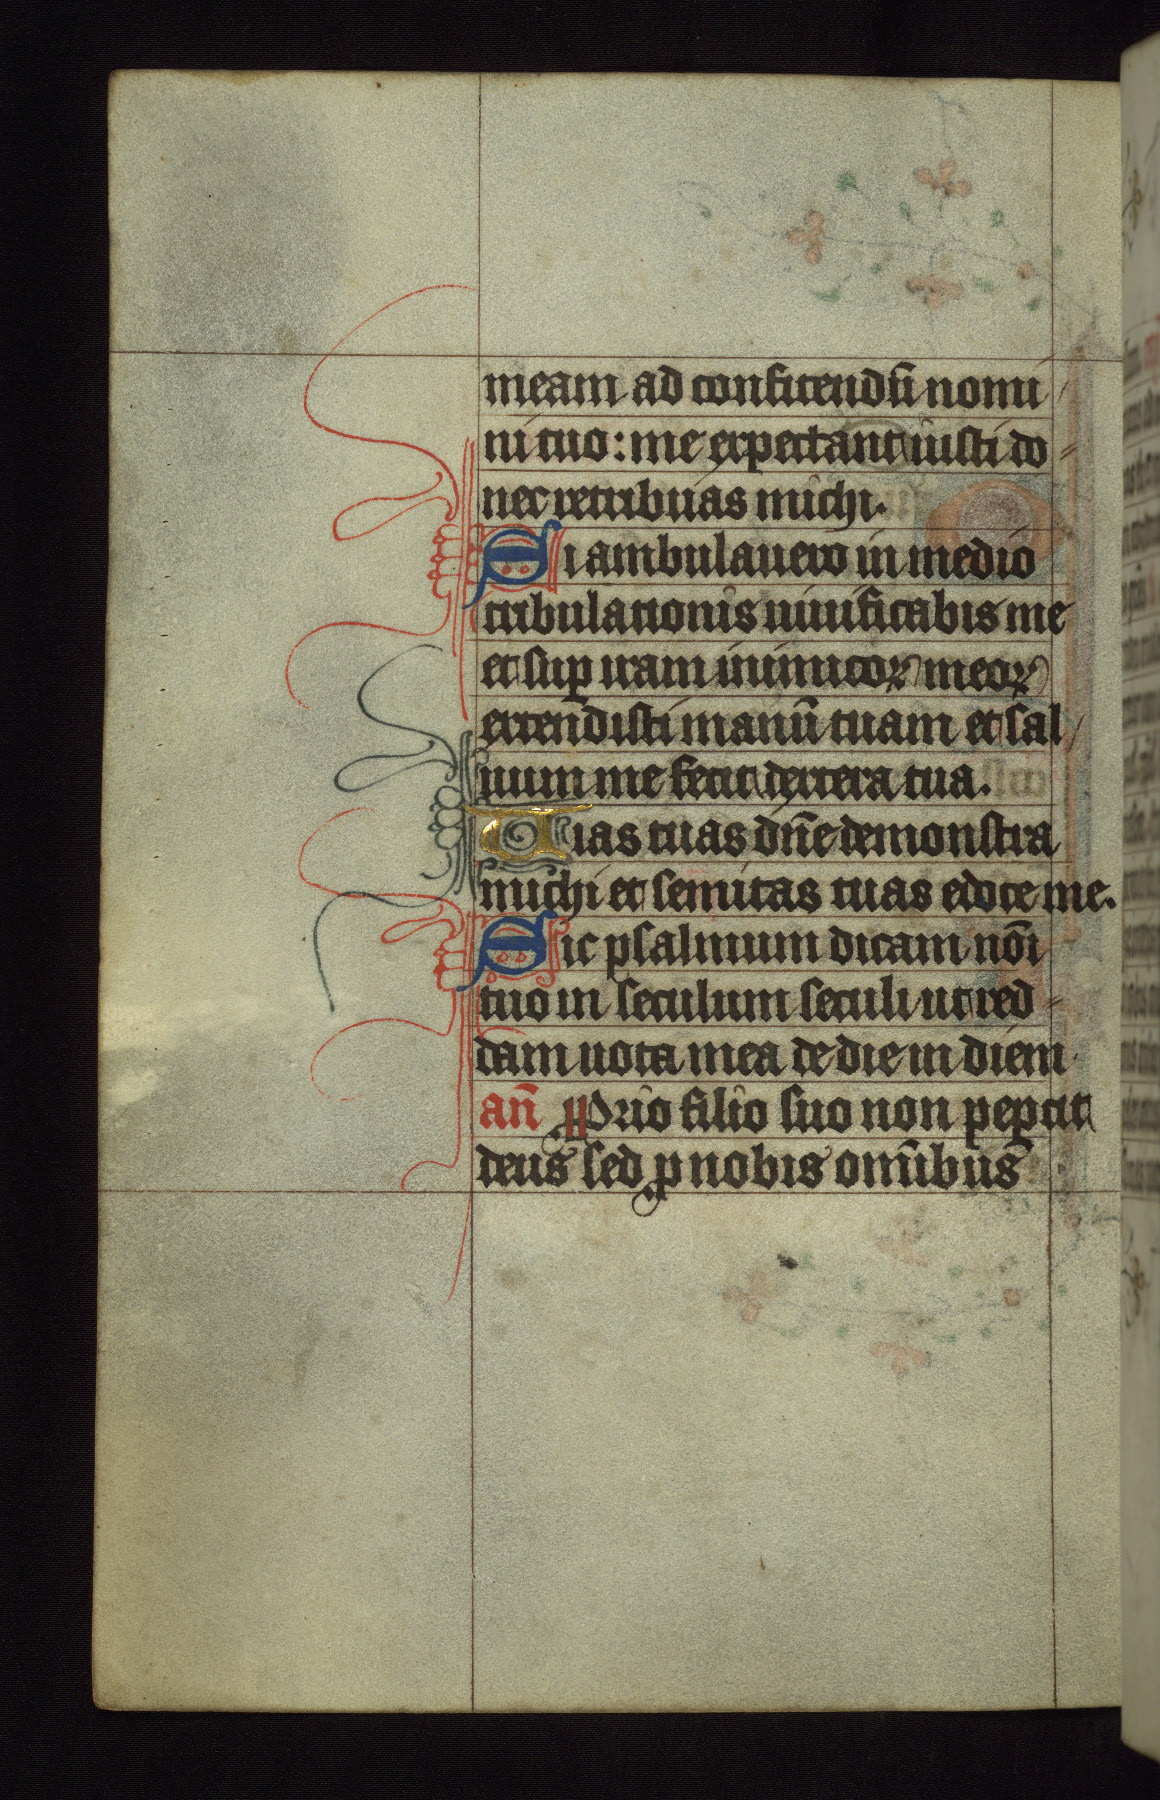 meam ad confitendū nomi
ni tuo: me expectant iusti do
nec retribuas michi.
Si ambulauero in medio
tribulationis uiuificabis me
et sup iram inimicoꝝ meoꝝ
extendisti manū tuam et sal
uum me fecit dextera tua.
Uias tuas dn̄e demonstra
michi et semitas tuas edoce me.
Sic psalmum dicam nōi
tuo in seculum seculi ut red
dam uota mea de die in diem
an̄ Proꝓrio filio suo non peꝑcit
deus sed ꝓ nobis omībus